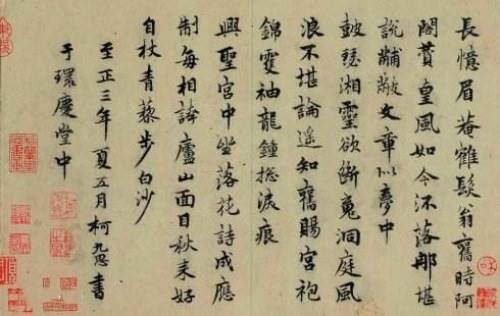 長憶眉菴鶴髮翁舊時阿
閣賛皇風如今流落那堪
說黼黻文章似夢中
鼓瑟湘靈欲斷䰟洞庭風
浪不堪論遥知舊賜宮袍
錦雙袖龍鍾揔淚痕
興聖宮中坐落花詩成應
制每相誇廬山面目秋来好
自杖青藜步白沙
至正三年夏五月柯九思書
于環慶堂中